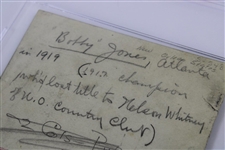 "Bobby" Jones, Atlanta
in 1919 (1917 champion
who lost title to Nelson Whitney
of N.O. Country Club)